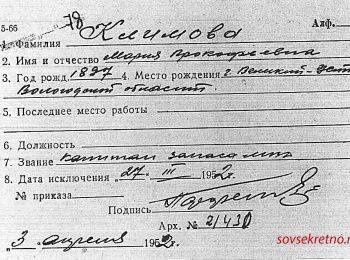 5-66
78
Алф.
1. Фамилия Климова
2. Имя и отчество Мария Прокофьевна
3. Год рожд. 1897 4. Место рождения г. Великий-Устюг
Вологодской области
5. Последнее место работы
6. Должность
7. Звание капитан запаса
8. Дата исключения „27" III 1952 г.
№ приказа
Подпись
Арх. № 21430
„3" апреля 1952 г.
sovsekretno.r